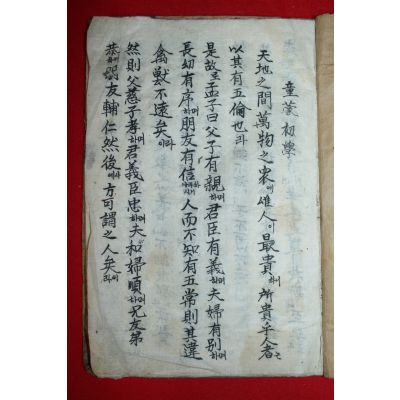 童蒙初學
天地之間萬物之衆에唯人이最貴하니所貴乎人者는
以其有五倫也라
是故로孟子曰父子有親하며君臣有義하며夫婦有別하며
長幼有序하며朋友有信人而不知有五常則其違
禽獸不遠矣
然則父慈子孝하며君義臣忠하며夫和婦順하며兄友弟
恭하며朋友輔仁然後方可謂之人矣